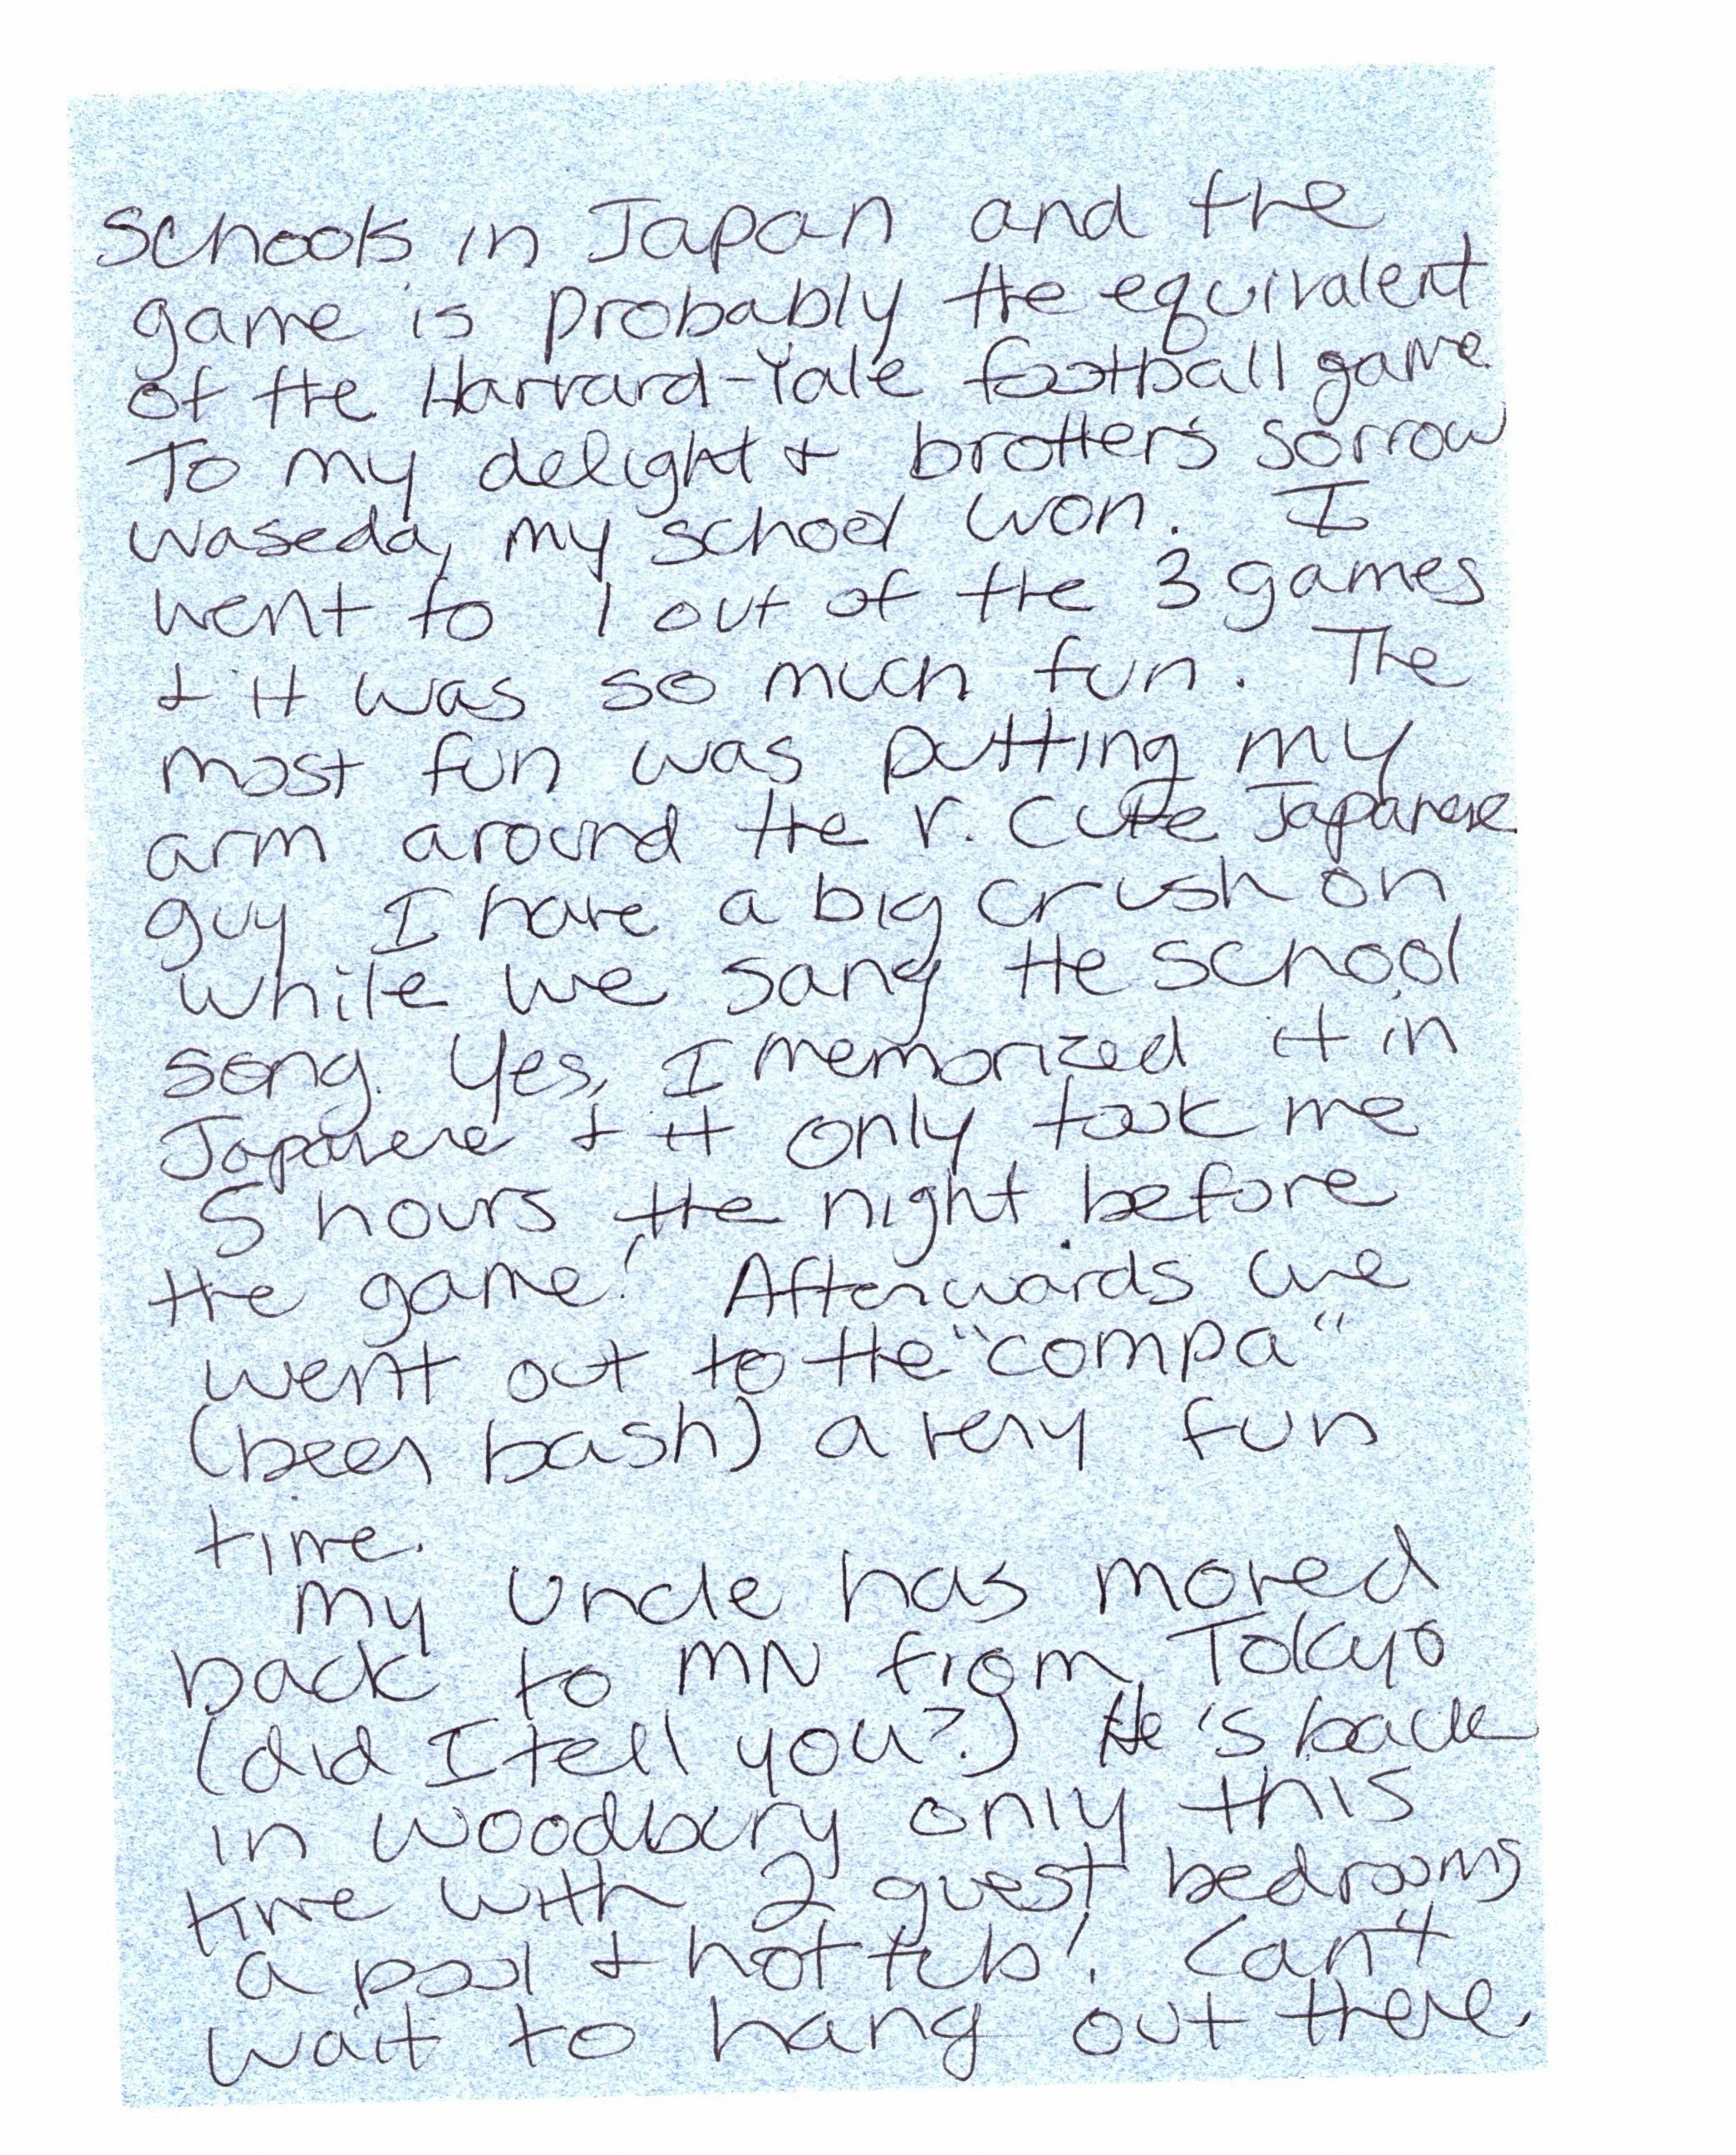 schools in Japan and the
game is probably the equivalent
of the Harvard-Yale football game.
To my delight + brother's sorrow
Waseda, my school won. I
went to 1 out of the 3 games
+ it was so much fun. The
most fun was putting my
arm around the v. cute Japanese
guy I have a big crush on
while we sang the school
song. Yes, I memorized it in
Japanese + it only took me
5 hours the night before
the game! Afterwards we
went out to the "compa"
(beer bash) a very fun
time.
My uncle has moved
back to MN from Tokyo
(did I tell you?) He's back
in Woodbury only this
time with 2 guest bedrooms
a pool + hot tub! Can't
wait to hang out there.